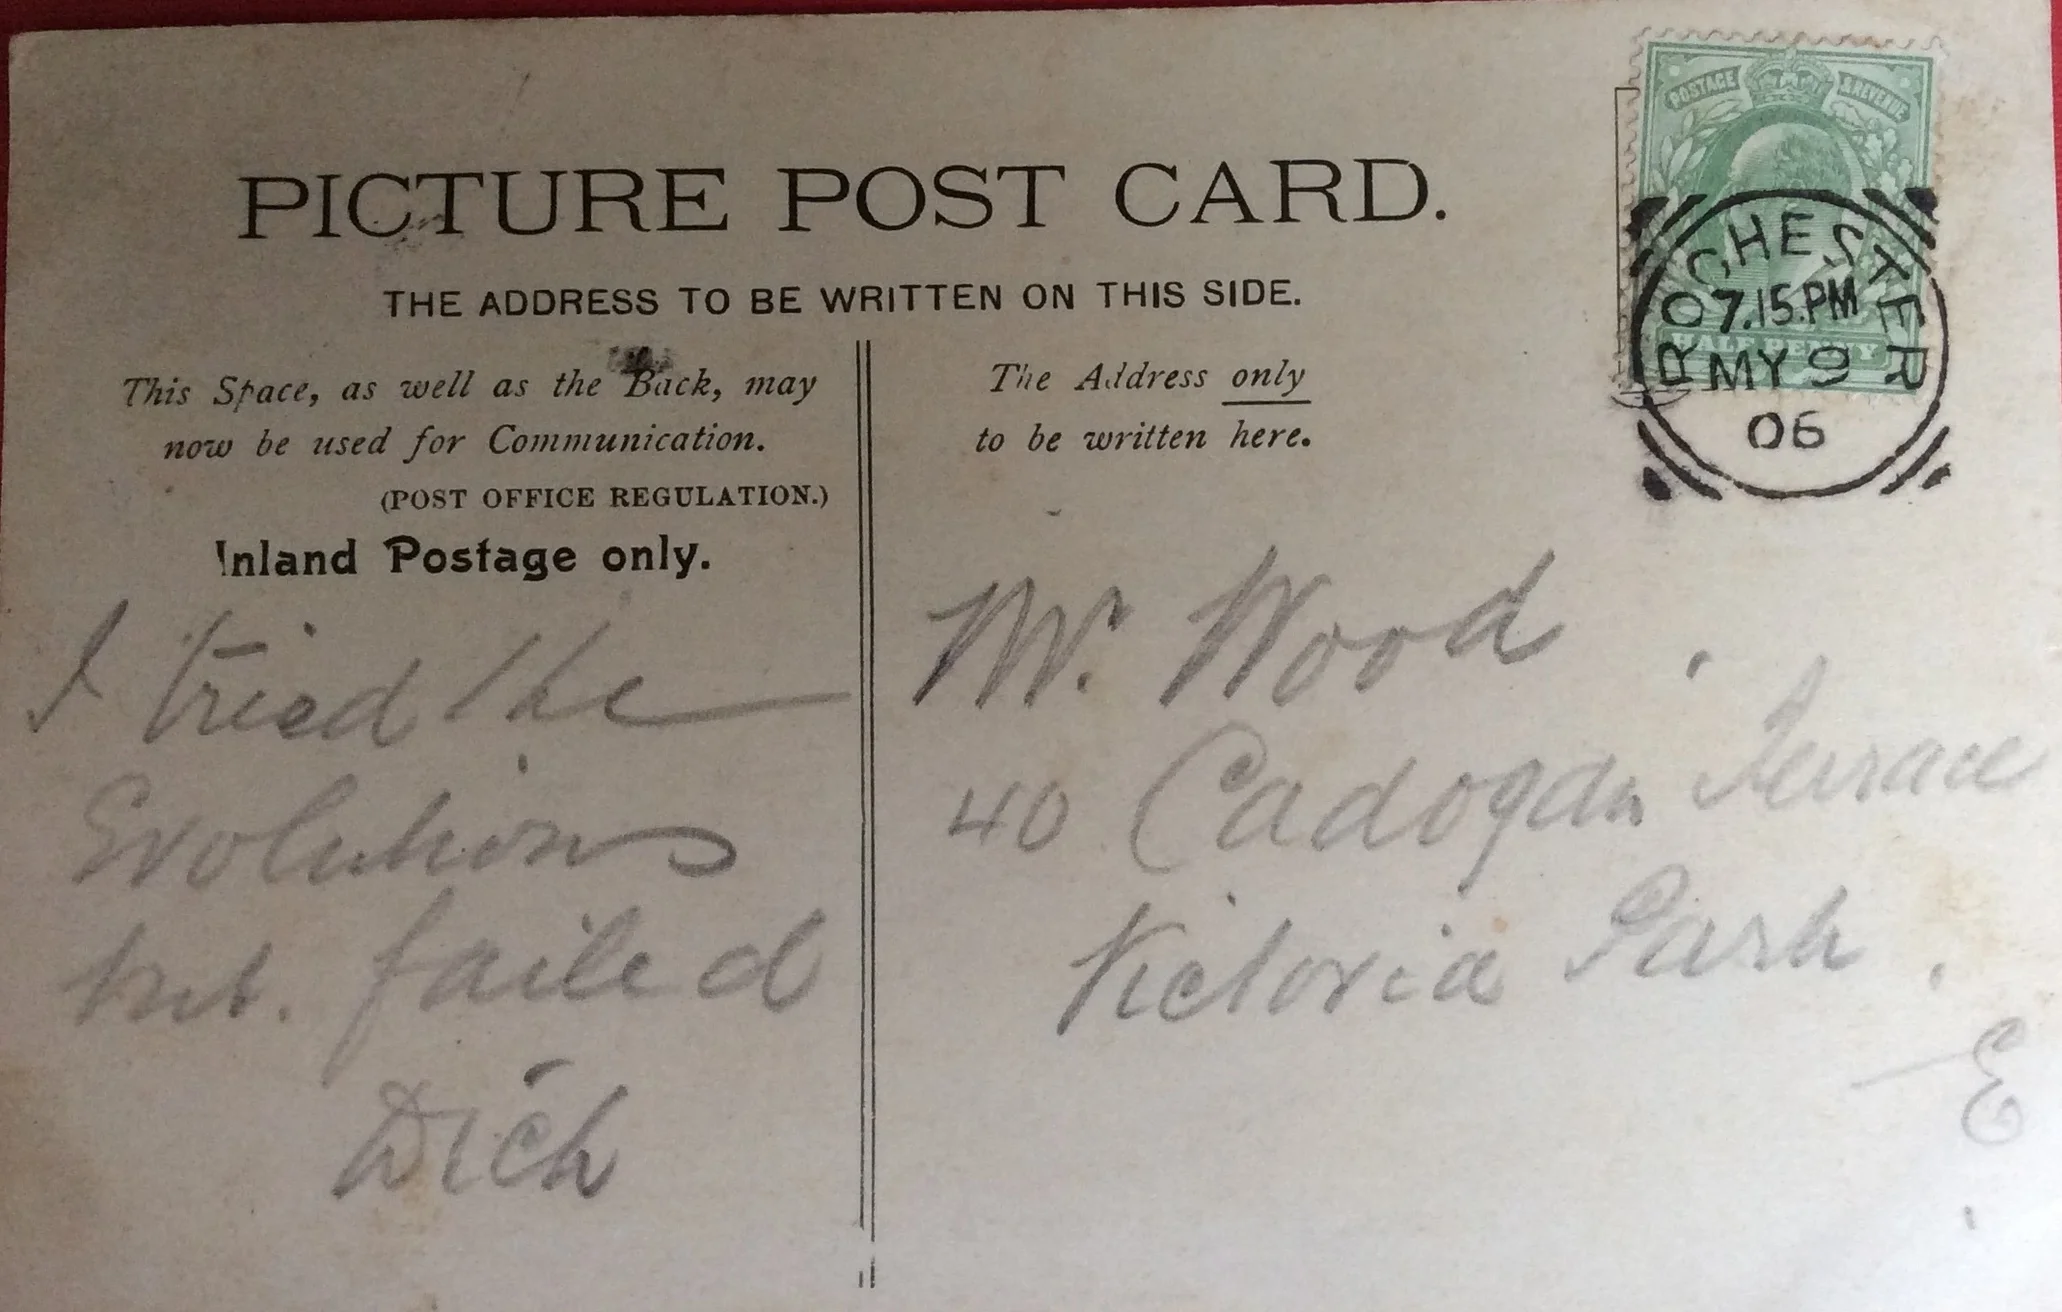 PICTURE POST CARD.
THE ADDRESS TO BE WRITTEN ON THIS SIDE.
This Space, as well as the Back, may
now be used for Communication.
(POST OFFICE REGULATION.)
Inland Postage only.
I tried the
Evolutions
but. failed
Dick
The Address only
to be written here.
Mr. Wood
40 Cadogan Terrace
Victoria Park.
E.
POSTAGE & REVENUE
HALF PENNY
ROCHESTER
7.15.PM
MY 9
06